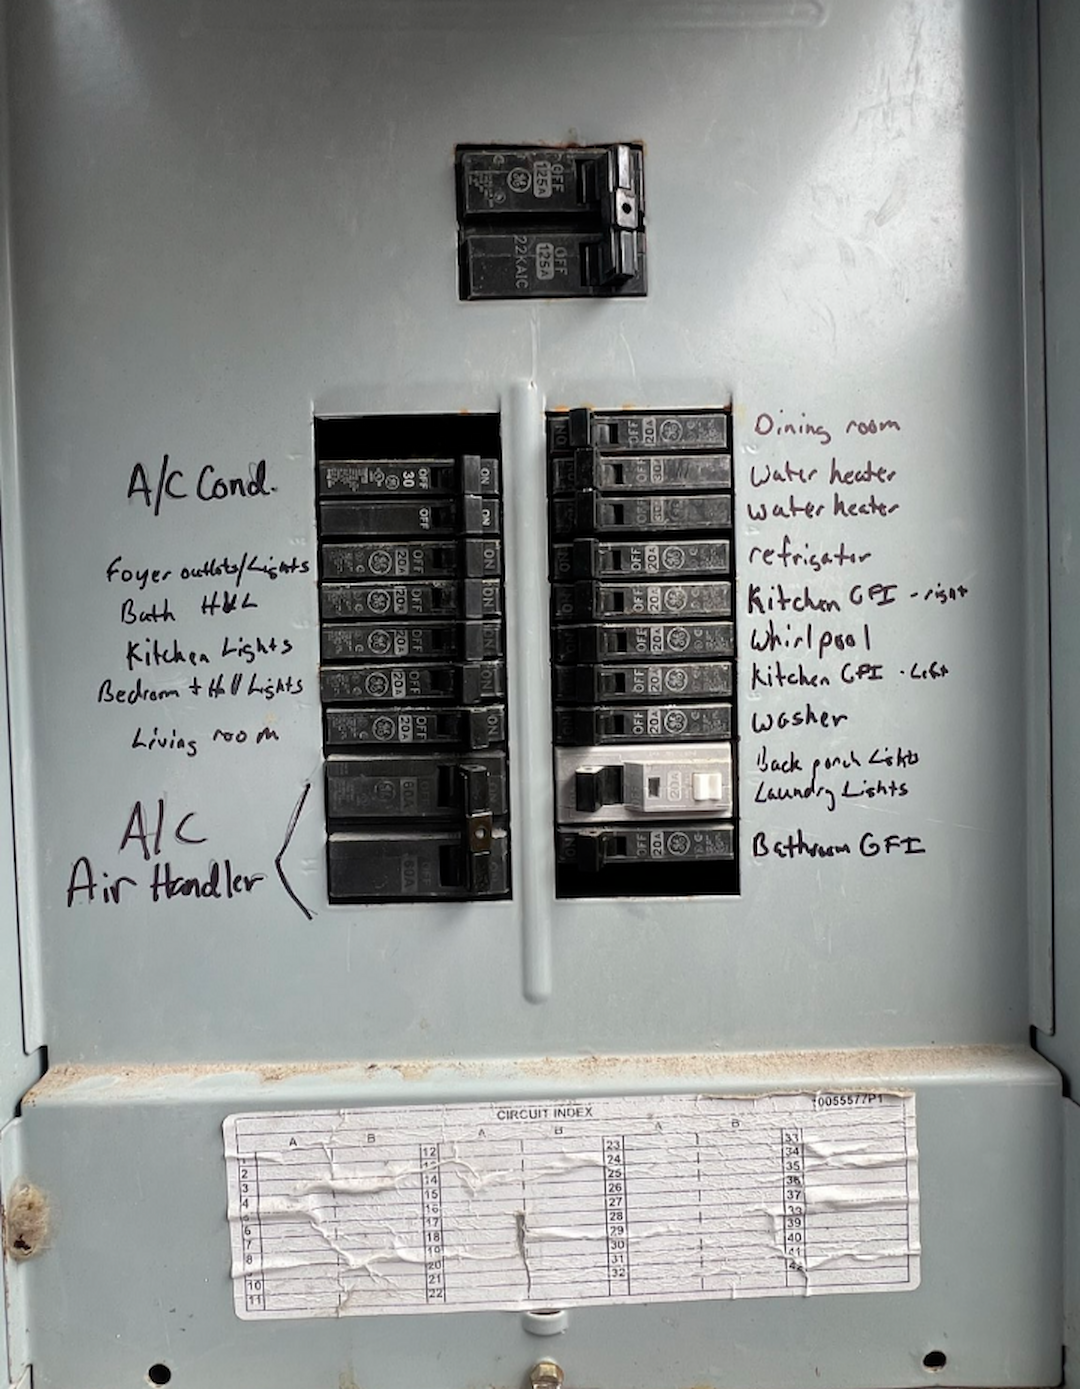 OFF
125A
OFF
125A
22KAIC
A/C Cond.
30
OFF
ON
OFF
ON
Foyer outlets/Lights
20A
OFF
ON
Bath
20A
OFF
ON
Kitchen Lights
20A
OFF
ON
Bedroom + Hall Lights
20A
OFF
ON
Living room
20A
OFF
ON
A/C
Air Handler
60A
60A
ON
OFF
20A
Dining room
OFF
30A
Water heater
OFF
water heater
OFF
20A
refrigator
OFF
20A
Kitchen GFI - right
OFF
20A
Whirlpool
OFF
20A
Kitchen GFI - Left
OFF
20A
washer
20A
Back porch Lights
Laundry Lights
ON
OFF
20A
Bathroom GFI
CIRCUIT INDEX
10055577P1
A B A B A B
1 12 23 33
2 24 34
3 14 25 35
4 15 26 36
16 27 37
6 17 28
7 18 29 39
8 19 30 40
20 31 41
10 21 32 42
11 22